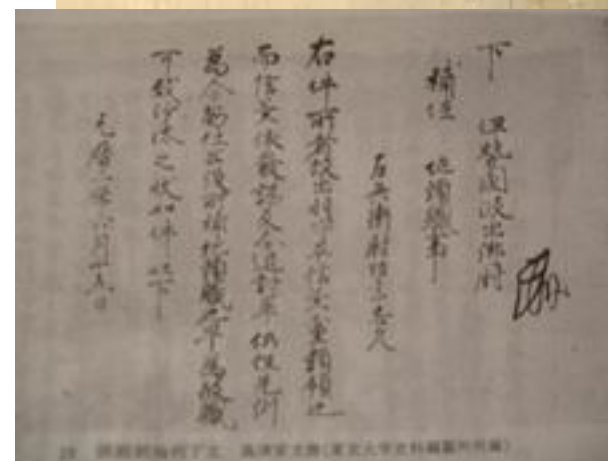 下 伊勢国波出御厨
補任 地頭職事
左兵衛尉惟宗忠久
右件所者故出羽守平信兼党類領也
而信兼依発謀反令追討畢仍任先例
為令勤仕公役所補地頭職也早為彼職
可致沙汰之状如件以下
元暦二年六月十五日
源頼朝袖判下文 島津家文書(東京大学史料編纂所所蔵)